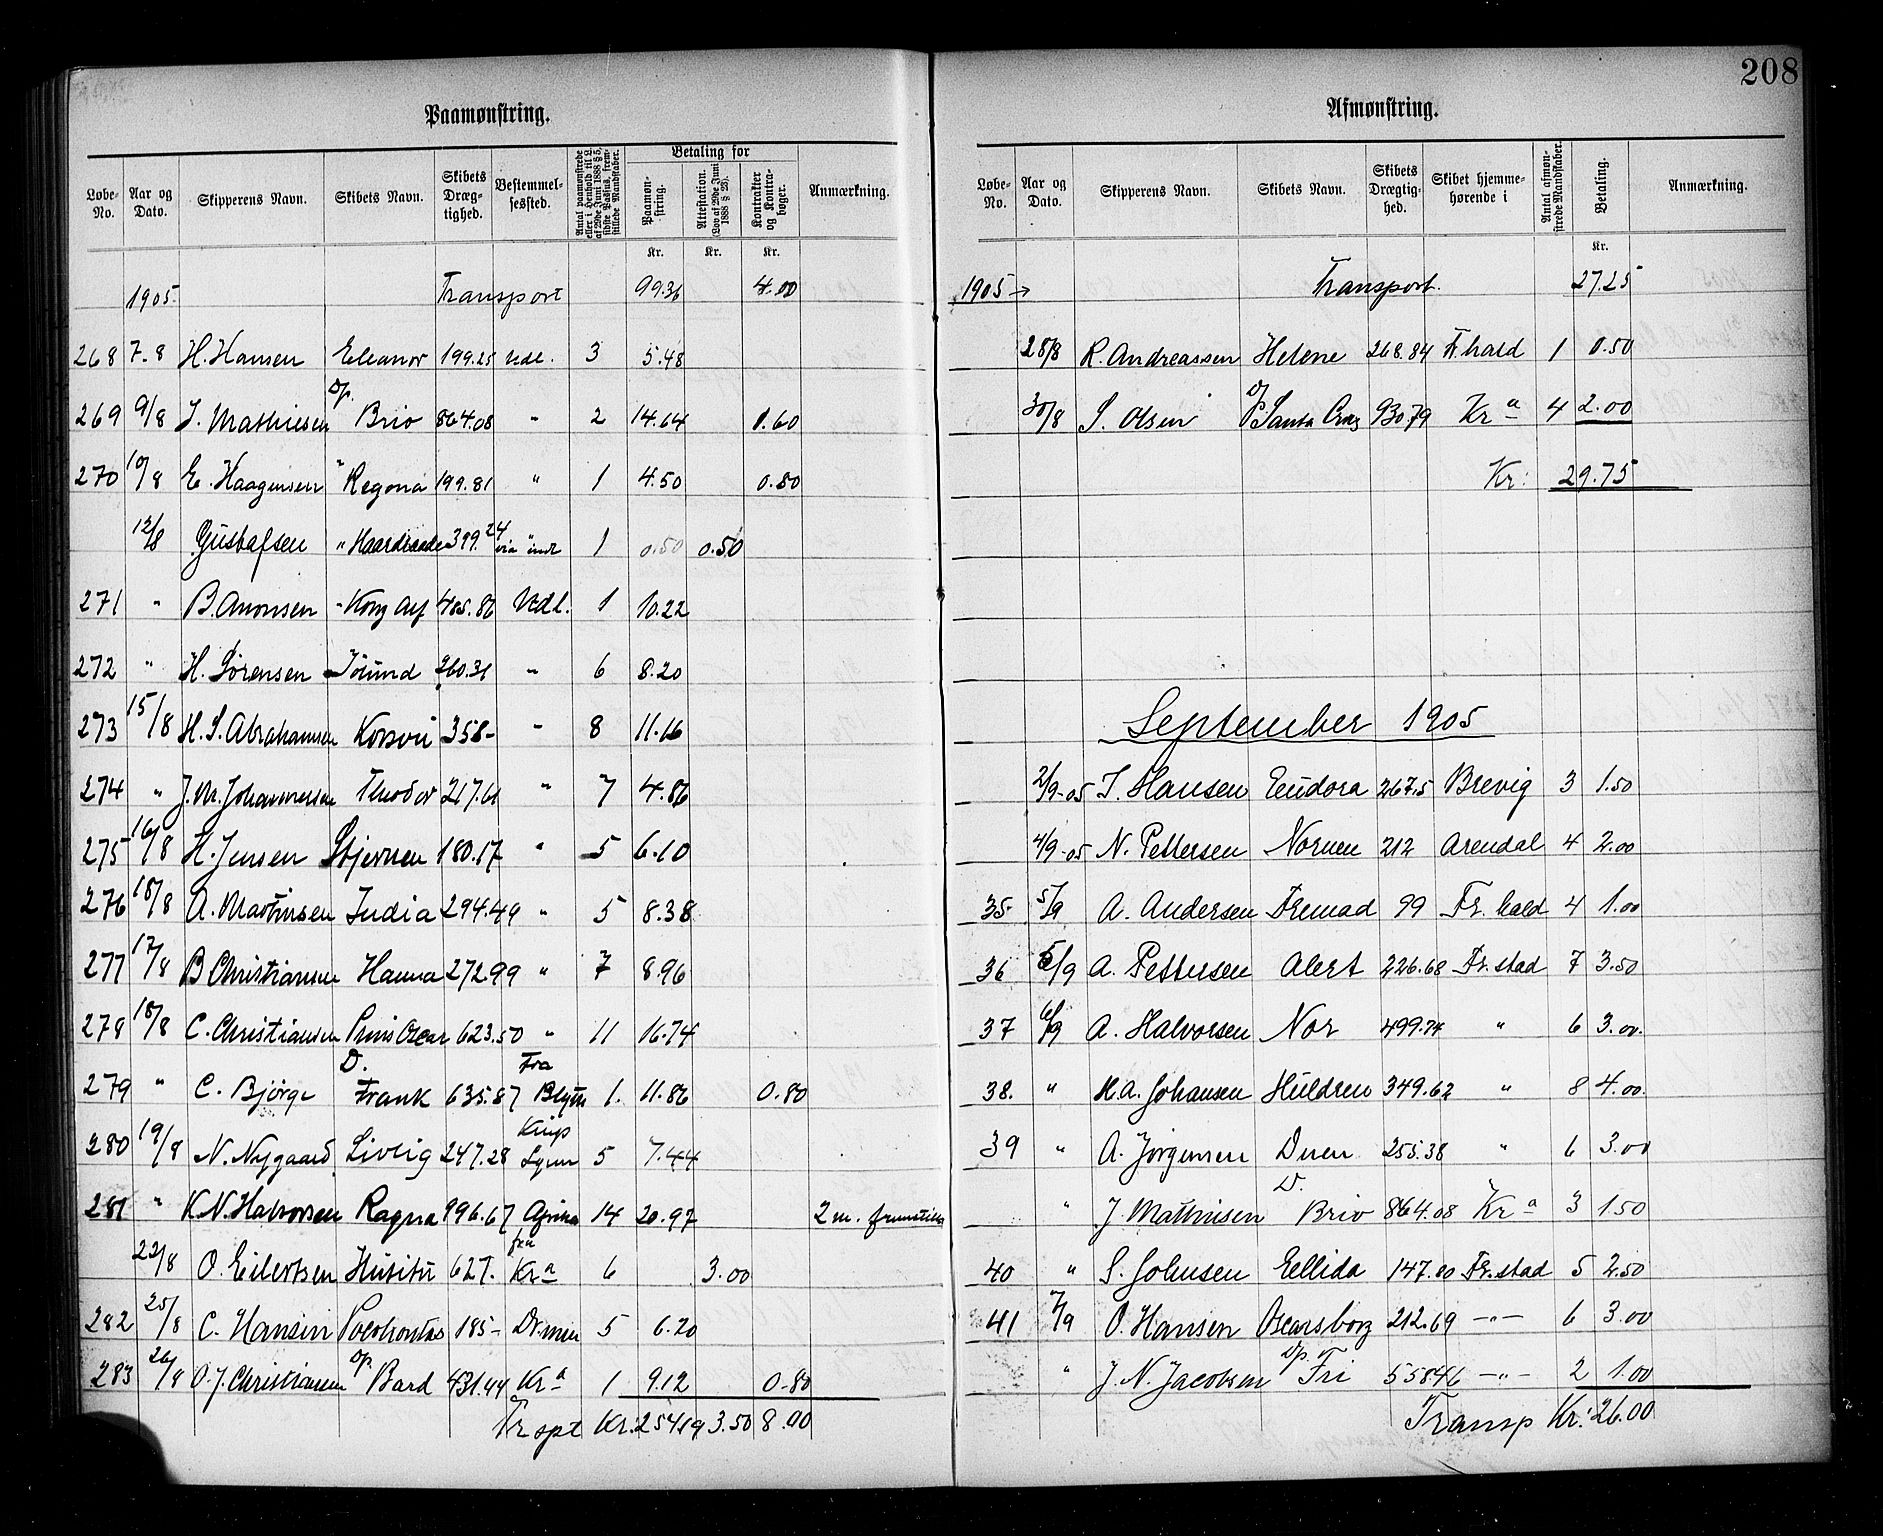 208
Paamønstring.
Løbe-No. Aar og Dato. Skipperens Navn. Skibets Navn. Skibets Dræg-tighed. Bestemmel-sessted. Antal paamønstrede eller i Henhold til L. af 29de Juni 1888 § 5, sidste Passus, frem-stillede Mandskaber. Betaling for Paamøn-string. Attestation. (Lov af 29de Juni 1888 § 28). Kontrakter og Kontra-bøger. Anmærkning.
Kr. Kr. Kr.
1905. Transport 99.36 4.00
268 7-8 H. Hansen Eleanor 199.25 Udl. 3 5.48
269 9/8 J. Mathiesen Dp. Brio 864.08 " 2 14.64 1.60
270 10/8 E. Haagensen " Regona 199.81 " 1 4.50 0.80
12/8 Gustafsen " Haardraade 399.24 via indl 1 0.50 0.50
271 " B. Amonsen " Kong Alf 485.86 Udl. 1 10.22
272 " H. Sørensen Jörund 260.31 " 6 8.20
273 15/8 H. S. Abrahamsen Korsvei 358- " 8 11.16
274 " J. M. Johannessen Theodor 217.61 " 7 4.86
275 16/8 H. Jensen Stjernen 180.17 " 5 6.10
276 18/8 A. Martinsen India 294.49 " 5 8.38
277 17/8 B Christiansen Hanna 272.99 " 7 8.96
278 18/8 C. Christiansen Prins Oscar 623.50 " 11 16.74
279 " C. Bjørge D. Frank 635.87 Fra Blyth 1. 11.86 0.80
280 19/8 N. Nygaard Livlig 247.28 Kings Lynn 5 7.44
281 " K. N. Halvorsen Ragna 996.67 Afrika 14 20.97 2 m. fremstillet
22/8 O. Eilertsen 627. fra Kr a 6 3.00
282 25/8 C. Hansen Pocohontas 185- Drmen 5 6.20
283 26/8 O. J. Christiansen Dp. Bard 431.44 Kr a 1 9.12 0.80
Trspt Kr. 254.19 3.50 8.00
Afmønstring.
Løbe-No. Aar og Dato. Skipperens Navn. Skibets Navn. Skibets Drægtig-hed. Skibet hjemme-hørende i Antal afmøn-strede Mandskaber. Betaling. Anmærkning.
Kr.
1905 Transport. 27.25
28/8 R. Andreassen Helene 268.84 Fr.hald 1 0.50
30/8 S. Olsen D/ Santa Cruz 930.79 Kr a 4 2.00
Kr: 29.75
September 1905
2/9-05 J. Hansen Eudora 267.5 Brevig 3 1.50
4/9-05 N. Pettersen Nornen 212 Arendal 4 2.00
35 5/9 A. Andersen Fremad 99 Fr. hald 4 1.00
36 5/9 A. Pettersen Alert 226.68 Fr. stad 7 3.50
37 6/9 A. Halvorsen Nor 499.74 " 6 3.00.
38. " K. A. Johansen Huldren 349.62 " 8 4.00.
39 " A. Jørgensen Duen 255.38 " 6 3.00
" J. Mathiesen D. Brio 864.08 Kr a 3 1.50
40 " S. Johnsen Ellida 147.80 Fr. stad 5 2.50
41 7/9 O. Hansen Oscarsborg 212.69 -"- 6 3.00
" J. N. Jacobsen Dp. Fri 558.46 -"- 2 1.00
Transp Kr: 26.00